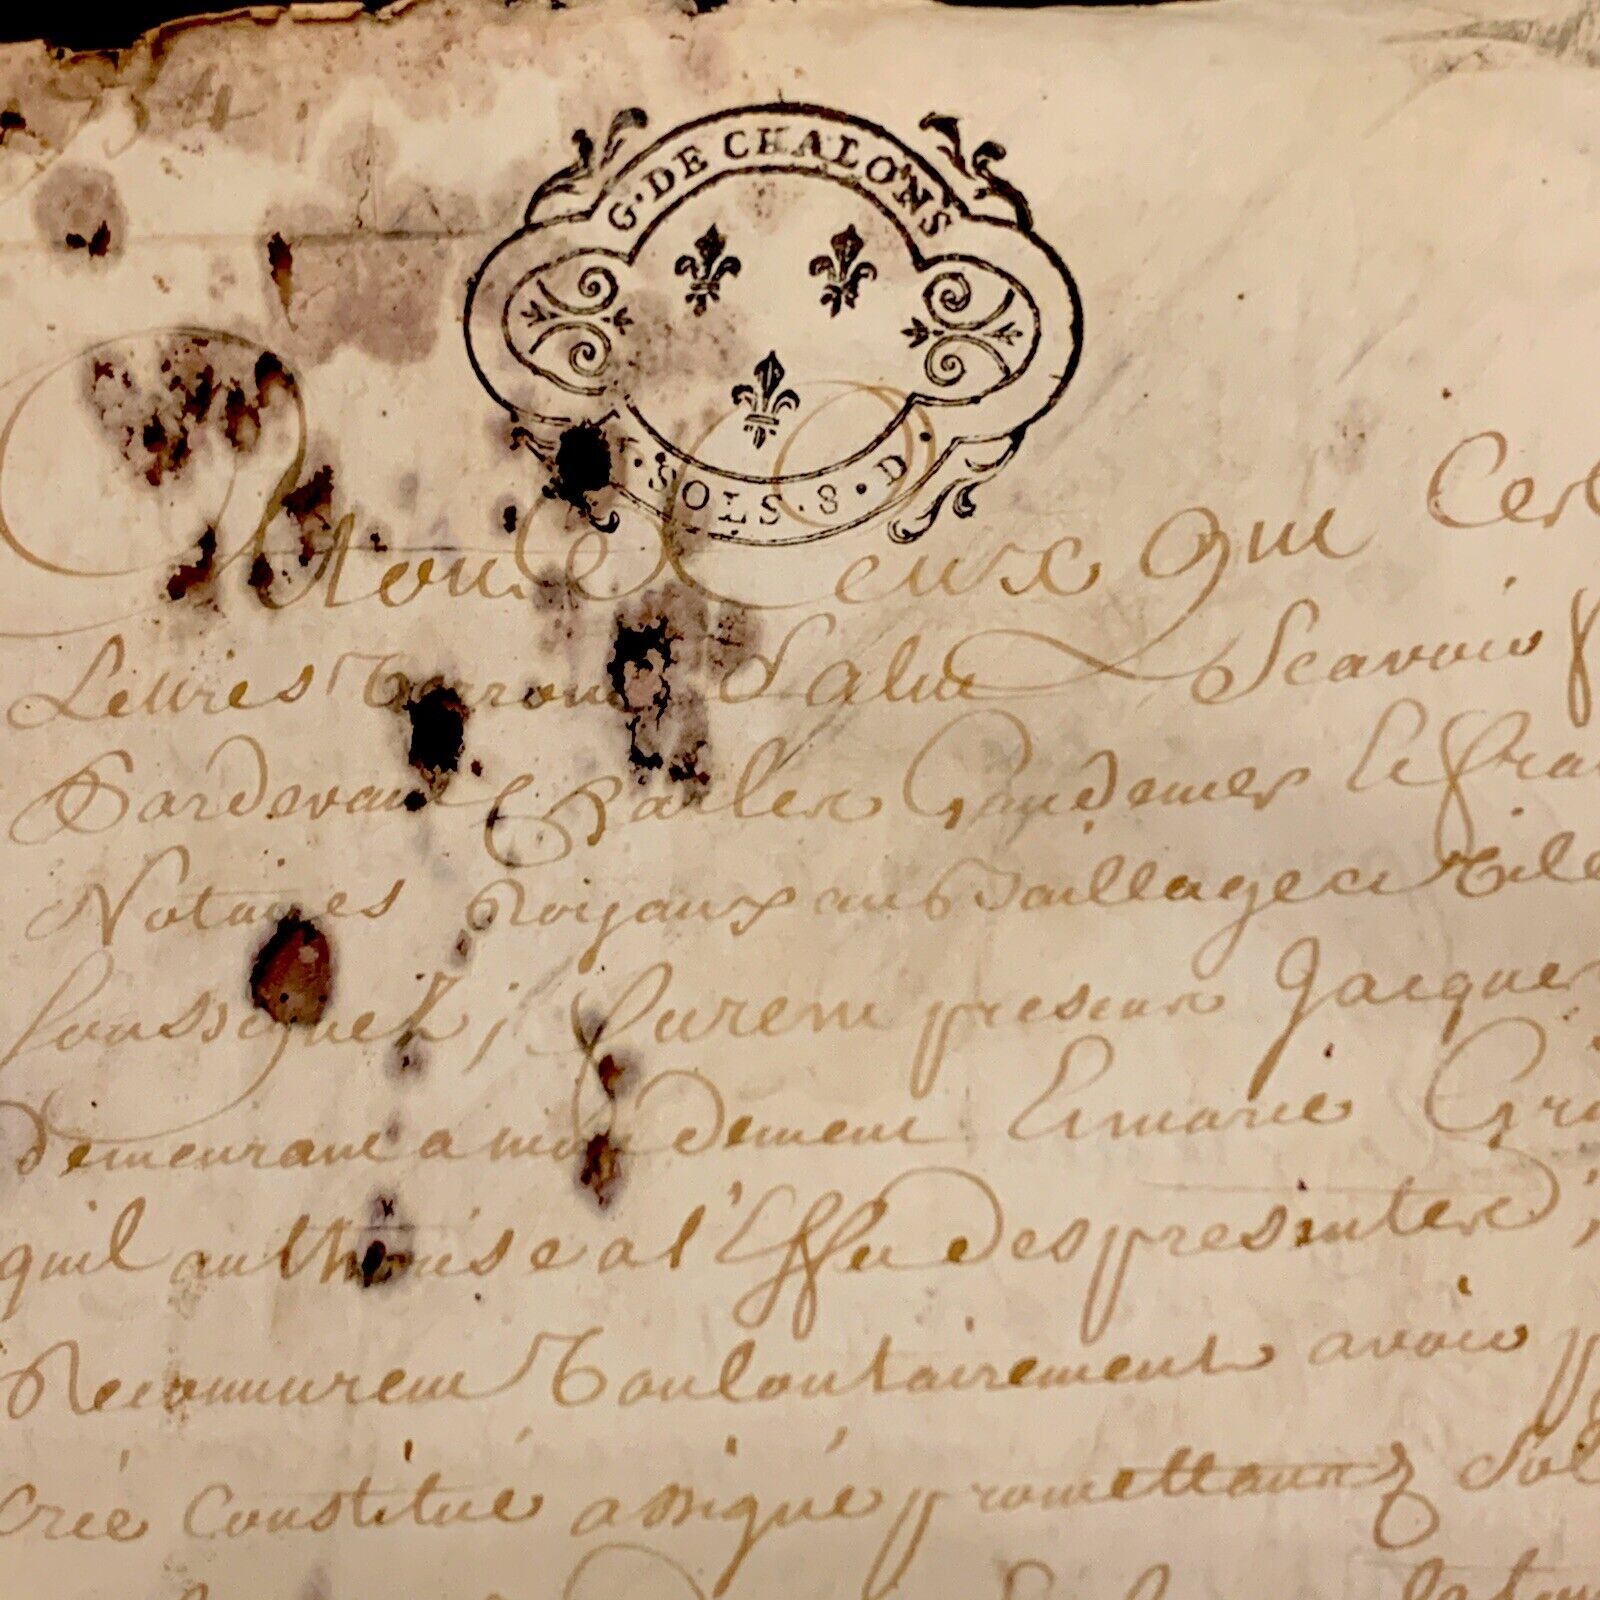 G · DE CHALONS
SOLS · 8 · D ·
A Tous Ceux que
Lettres Verront Salut Scavoir
Pardevant Charles Gaudemer Le
Notaires Royaux au Bailliage
soussignez ; furent presens Jacques
demeurant a mondement Et marie
quil authorise a l'Effet des presentes ;
Reconnurent Voulontairement avoir
crée Constitué assigné promettans